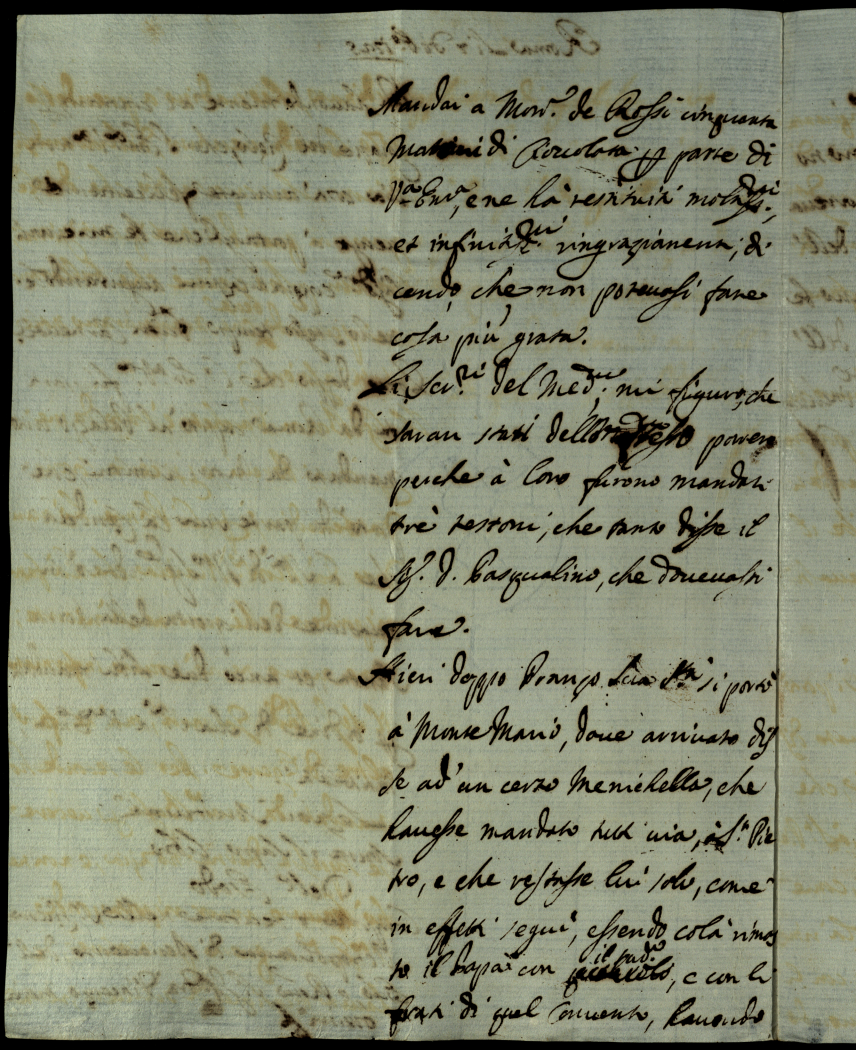 Mandai a Mons.r de Rossi cinquanta
Mattoni di Cioccolata per parte di
V.a Em.a, e ne hà restituiti molti.ssi,
et infiniti.mi ringraziamenti, di-
cendo, che non potevasi fare
cosa più grata.
Li Ser.ri del Med.mo mi figuro, che
saran stati dello stesso parere
perche à loro furono mandati
trè testoni, che tanto disse il
Sig.r D. Pasqualino, che dovevasi
fare.
Hieri doppo Pranzo Sua S.tà si portò
à Monte Mario, dove arrivato dis
se ad' un certo Menichella, che
havesse mandato tutti via, à S.n Pie
tro, e che restasse lui solo, come
in effetti seguì, essendo colà rimas
to il Papa con il med.o, e con li
frati di quel Convento, havendo